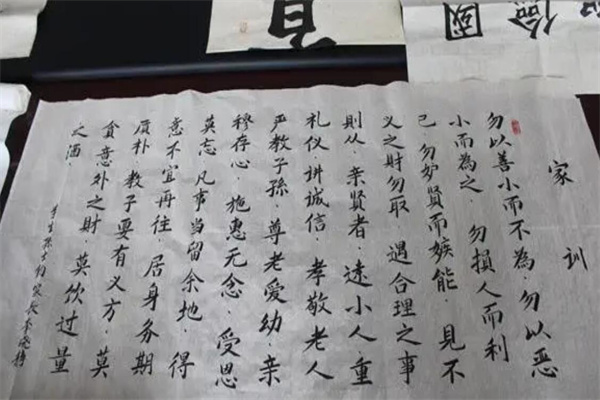 國
儉
家训
勿以善小而不為·勿以恶
小而為之·勿損人而利
己·勿妒賢而嫉能·見不
义之财勿取·遇合理之事
則从·亲賢者·遠小人重
礼仪·讲诚信·孝敬老人
严教子孫·尊老爱幼·亲
穆存心·施惠无念·受恩
莫忘·凡事当留余地·得
意不宜再往·居身务期
质朴·教子要有义方·莫
貪意外之财·莫饮过量
之酒·